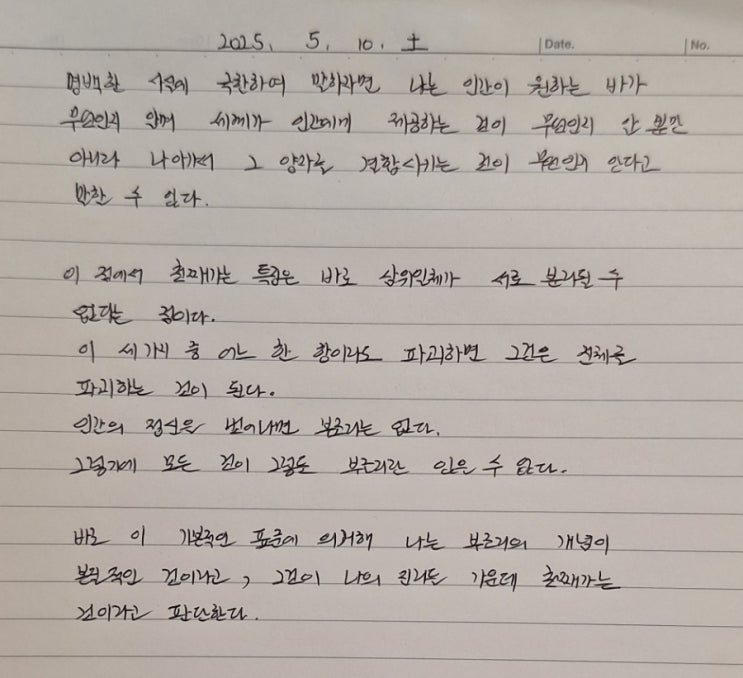 2025. 5. 10. 土
Date.
No.
명백한 사실에 국한하여 말하라면 나는 인간이 원하는 바가
무엇인지 알며 세계가 인간에게 제공하는 것이 무엇인지 알 뿐만
아니라 나아가서 그 양자를 결합시키는 것이 무엇인지 안다고
말할 수 있다.
이 점에서 첫째가는 특징은 바로 삼위일체가 서로 분리될 수
없다는 점이다.
이 세가지 중 어느 한 항이라도 파괴하면 그것은 전체를
파괴하는 것이 된다.
인간의 정신을 벗어나면 부조리는 없다.
그렇기에 모든 것이 그렇듯 부조리란 있을 수 없다.
바로 이 기본적인 표준에 의거해 나는 부조리의 개념이
본질적인 것이라고, 그것이 나의 진리들 가운데 첫째가는
것이라고 판단한다.